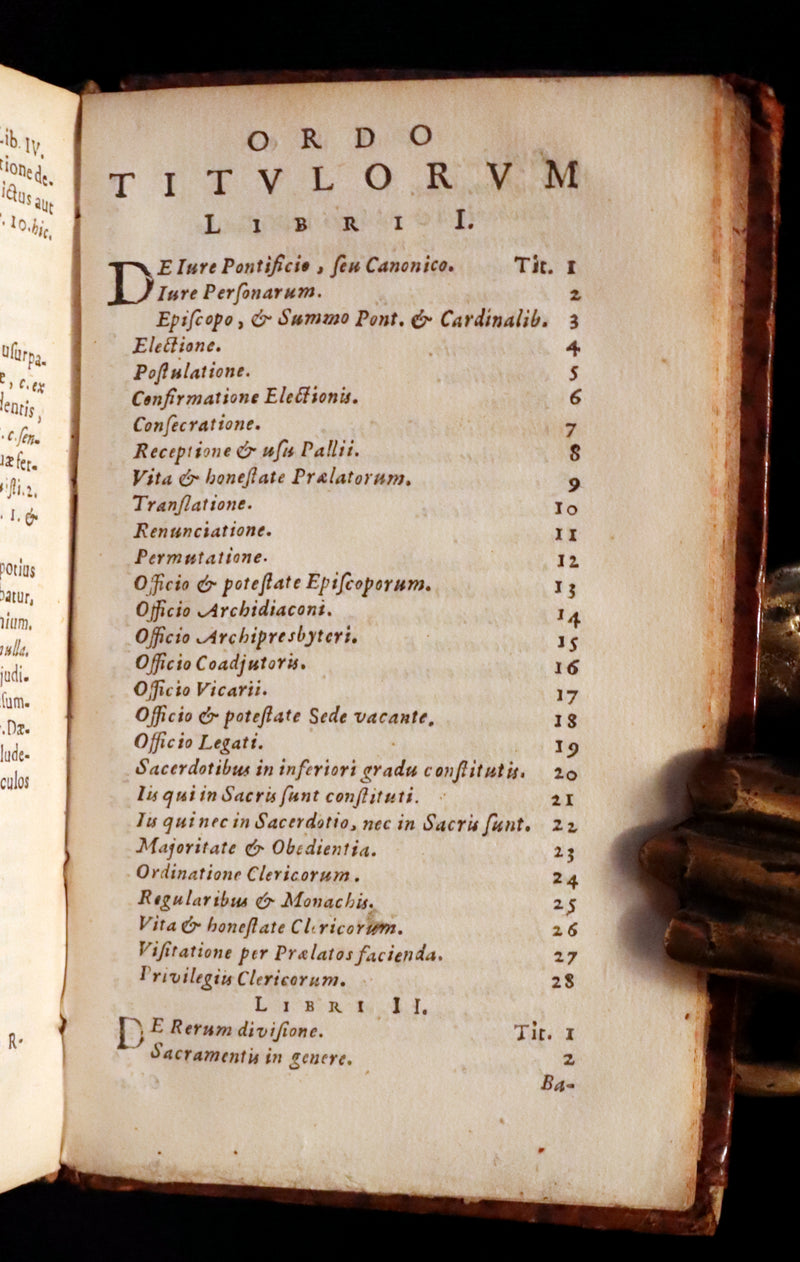 ib. IV.
tione de.
ictus aut
. 10. hic.
usurpa-
, c. ex
lentis,
. c. sen-
. I. &
potius
batur,
nium,
nulla.
judi-
sum-
. Dæ-
lude-
culos
R-
ORDO
TITVLORVM
LIBRI I.
DE Iure Pontificio, ſeu Canonico. Tit. 1
Iure Perſonarum. 2
Epiſcopo, & Summo Pont. & Cardinalib. 3
Electione. 4
Poſtulatione. 5
Confirmatione Electionis. 6
Conſecratione. 7
Receptione & uſu Pallii. 8
Vita & honeſtate Prælatorum. 9
Tranſlatione. 10
Renunciatione. 11
Permutatione. 12
Officio & poteſtate Epiſcoporum. 13
Officio Archidiaconi. 14
Officio Archipresbyteri. 15
Officio Coadjutoris. 16
Officio Vicarii. 17
Officio & poteſtate Sede vacante. 18
Officio Legati. 19
Sacerdotibus in inferiori gradu conſtitutis. 20
Iis qui in Sacris ſunt conſtituti. 21
Iis qui nec in Sacerdotio, nec in Sacris ſunt. 22
Majoritate & Obedientia. 23
Ordinatione Clericorum. 24
Regularibus & Monachis. 25
Vita & honeſtate Clericorum. 26
Viſitatione per Prælatos facienda. 27
Privilegiis Clericorum. 28
LIBRI II.
DE Rerum diviſione. Tit. 1
Sacramentis in genere. 2
Ba-